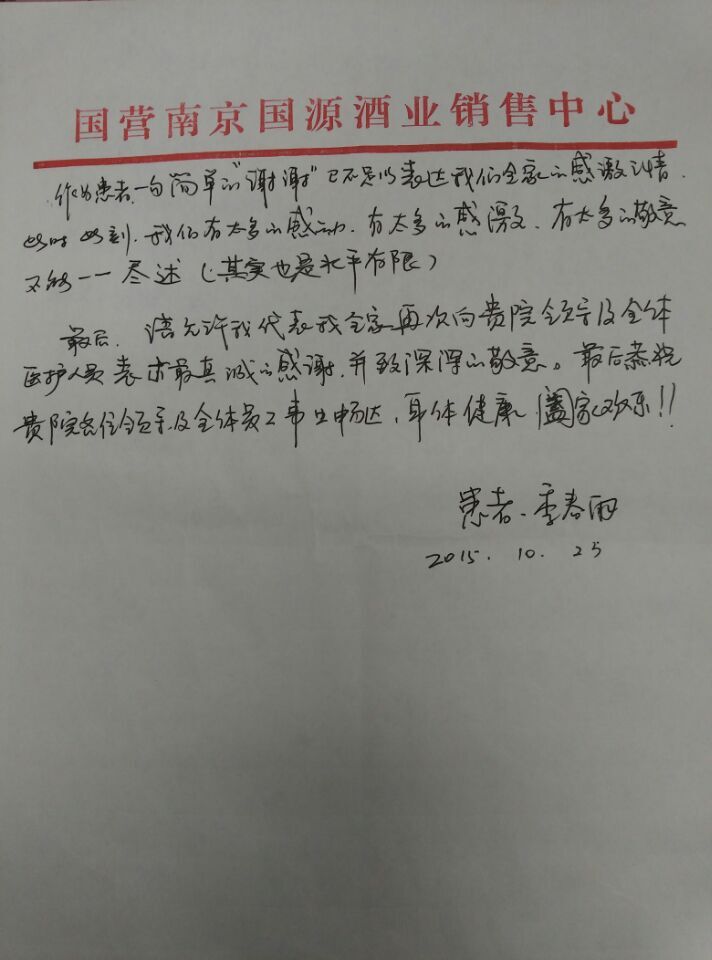 国营南京国源酒业销售中心
作为患者,一句简单的“谢谢”已不足以表达我们全家的感激之情.
此时此刻,我们有太多的感动,有太多的感激,有太多的敬意
不能一一尽述(其实也是水平有限)
最后,请允许我代表我全家再次向贵院领导及全体
医护人员表示最真诚的感谢,并致深深的敬意。最后恭祝
贵院各位领导及全体员工事业畅达,身体健康,阖家欢乐!!
患者.季春雨
2015.10.25